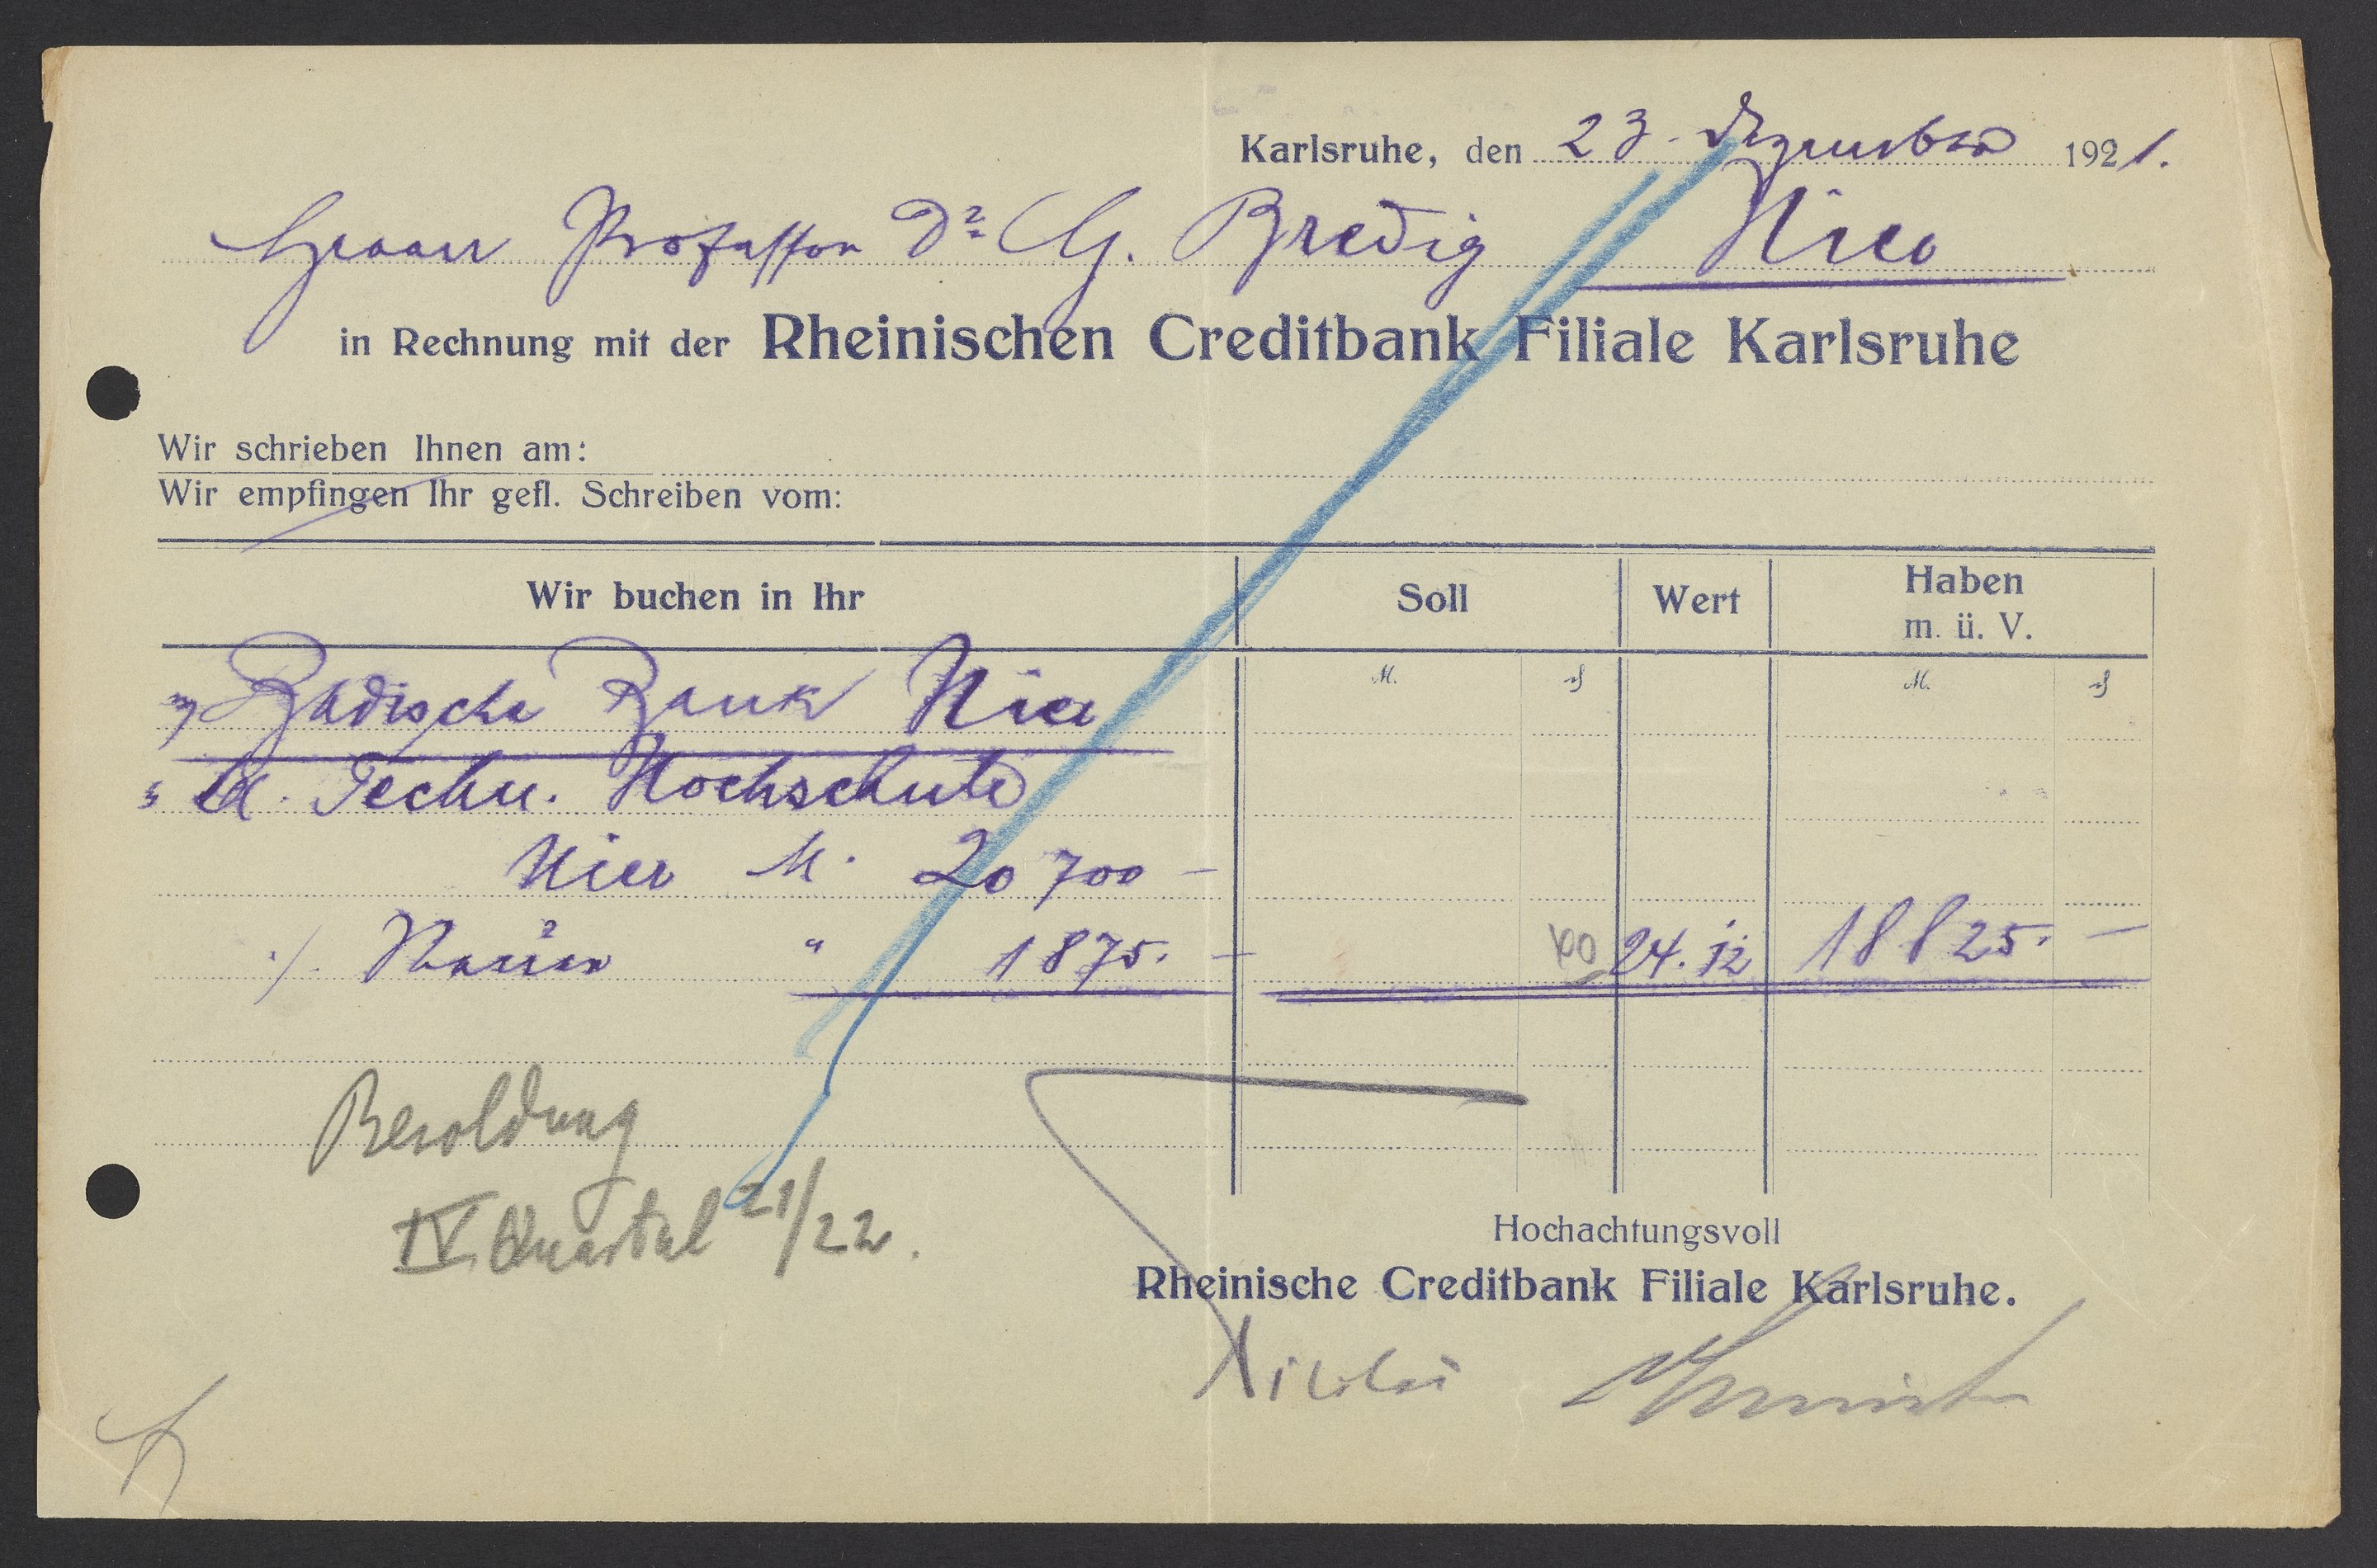 Karlsruhe, den 23. Dezember 1921.
Herrn Professor Dr. G. Bredig Hier
in Rechnung mit der Rheinischen Creditbank Filiale Karlsruhe
Wir schrieben Ihnen am:
Wir empfingen Ihr gefl. Schreiben vom:
Wir buchen in Ihr Soll Wert Haben
m. ü. V.
M. ₰ M. ₰
Badische Bank Hier
Techn. Hochschule
Hier M. 20 700 –
./. Steuer " 1875. – 24. 12 18825. –
Besoldung
IV. Quartal 21/22.
Hochachtungsvoll
Rheinische Creditbank Filiale Karlsruhe.